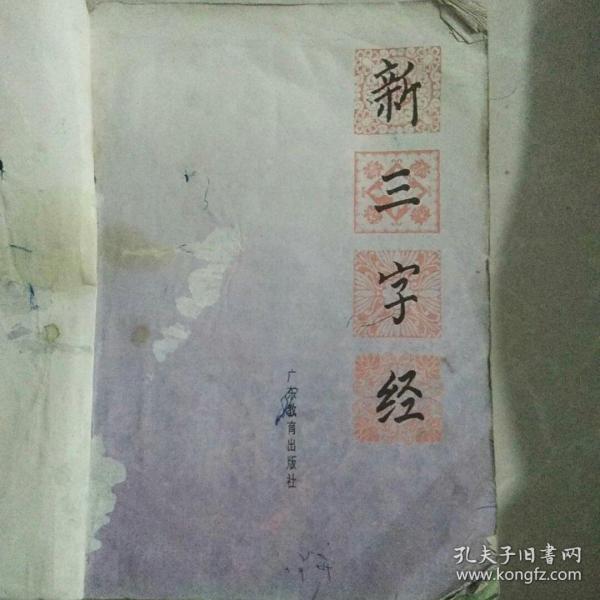 新三字经
广东教育出版社
孔夫子旧書网
www.kongfz.com